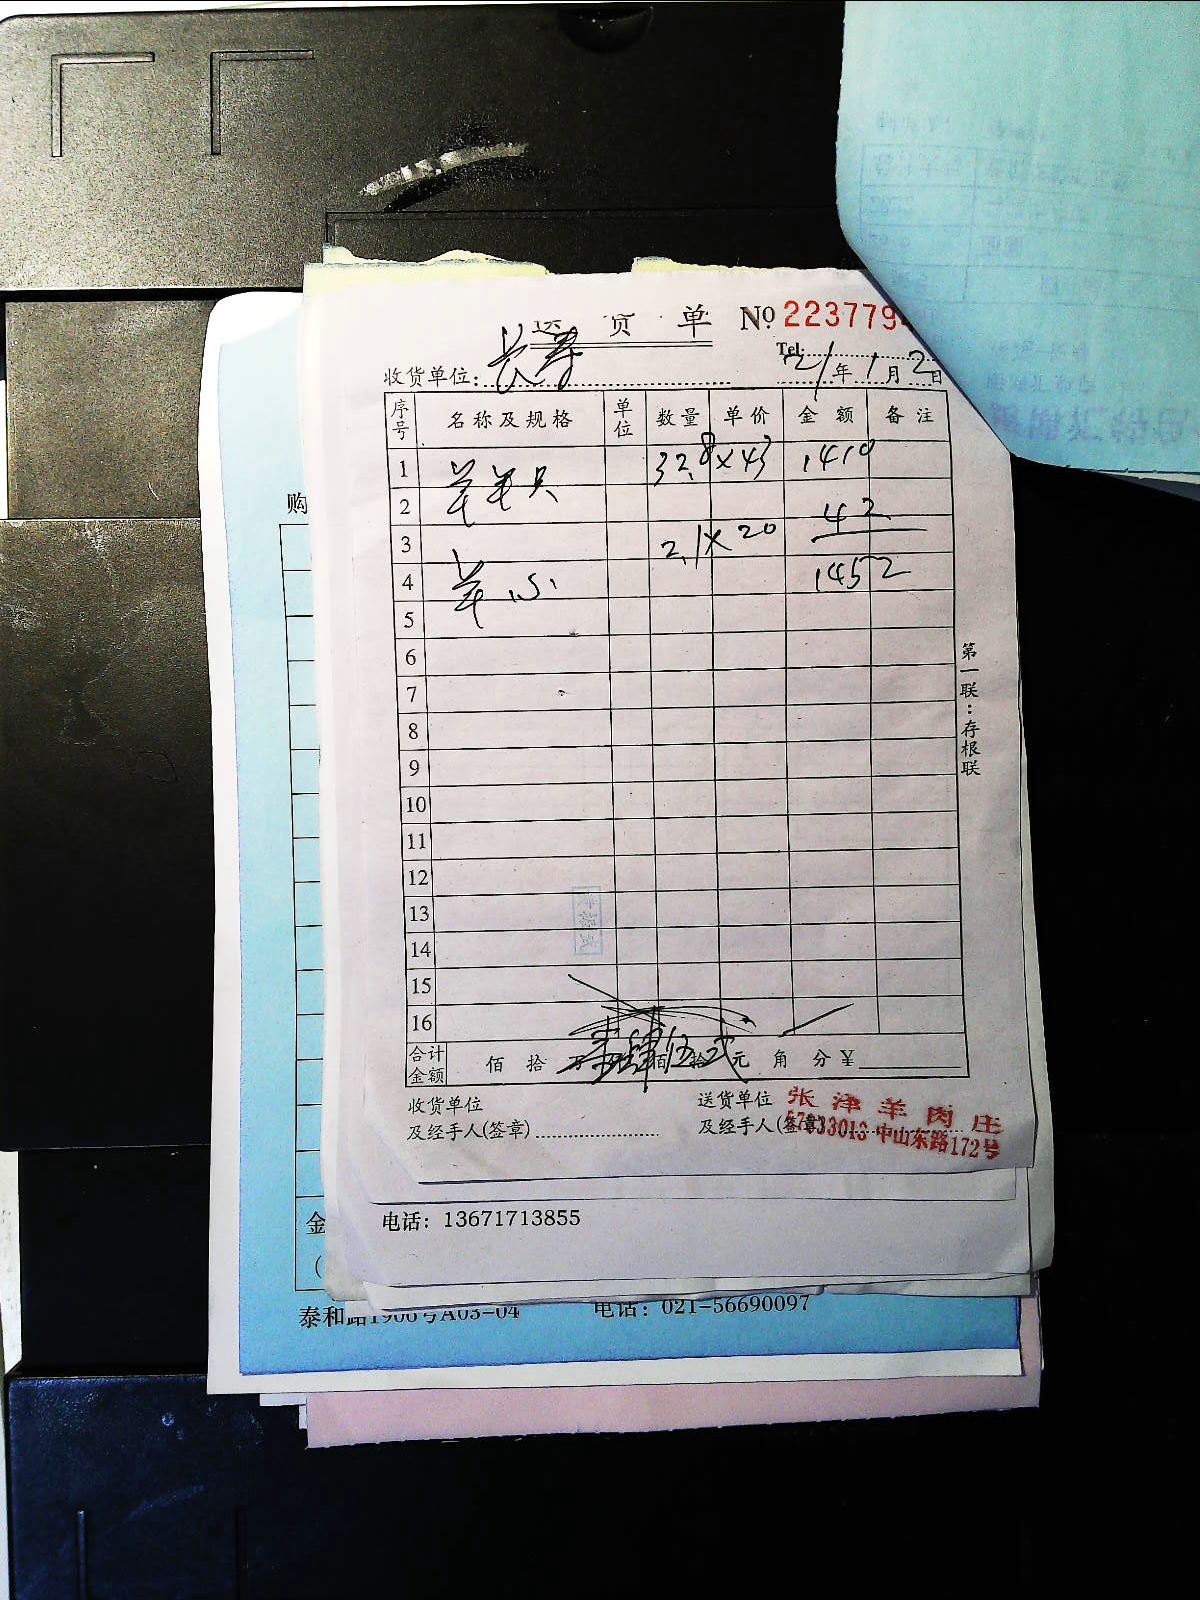 送货单 No 223779
Tel:
收货单位: 长寿 21年1月2日
序号 名称及规格 单位 数量 单价 金额 备注
1 羊半只 32.8×43 1410
2 42
3 2.1×20
4 羊心 1452
5
6
7
8
9
10
11
12
13
14
15
16
合计金额 佰拾万壹肆佰伍拾贰元角分¥
收货单位 送货单位 张津羊肉庄
及经手人(签章) 及经手人(签章) 57833013 中山东路172号
第一联:存根联
购
金
(
电话: 13671713855
泰和路1908号A03-04 电话: 021-56690097